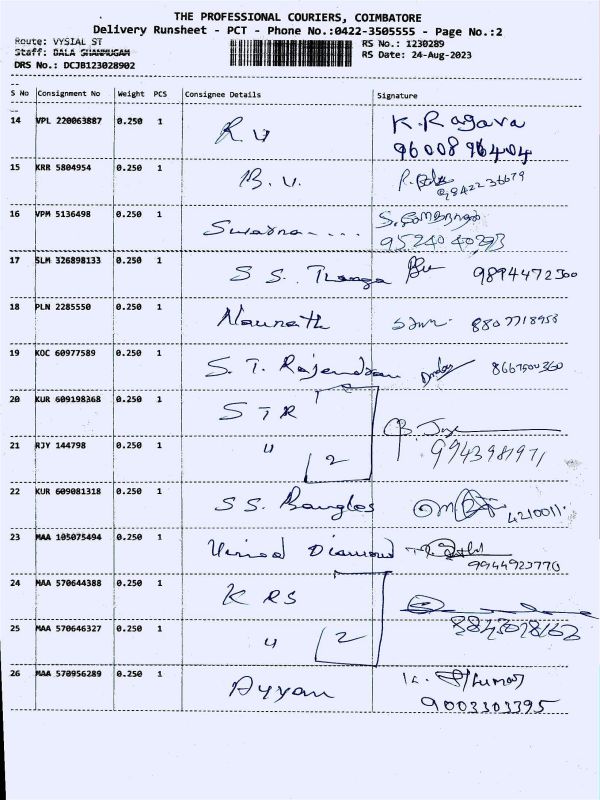 THE PROFESSIONAL COURIERS, COIMBATORE
Delivery Runsheet - PCT - Phone No.:0422-3505555 - Page No.:2
Route: VYSIAL ST
RS No.: 1230289
Staff: BALA SHANMUGAM
RS Date: 24-Aug-2023
DRS No.: DCJB123028902
S No Consignment No Weight PCS Consignee Details Signature
14 VPL 220063887 0.250 1 R V K. Ragava
9600896404
15 KRR 5804954 0.250 1 B. V.
9842236679
16 VPM 5136498 0.250 1 Swarna....
9524040293
17 SLM 326898133 0.250 1 S S. Thanga 9894472300
18 PLN 2285550 0.250 1 Naunath 8807718953
19 KOC 60977589 0.250 1 S. T. Rajendran 8667500360
20 KUR 609198368 0.250 1 S T R
21 RJY 144798 0.250 1 " 2 9943981971
22 KUR 609081318 0.250 1 S S. Bangles 4210011
23 MAA 105075494 0.250 1 Vinod Diamond
9944923770
24 MAA 570644388 0.250 1 K R S
25 MAA 570646327 0.250 1 " 2 8843028162
26 MAA 570956289 0.250 1 Ayyan K. Kumar
9003303395